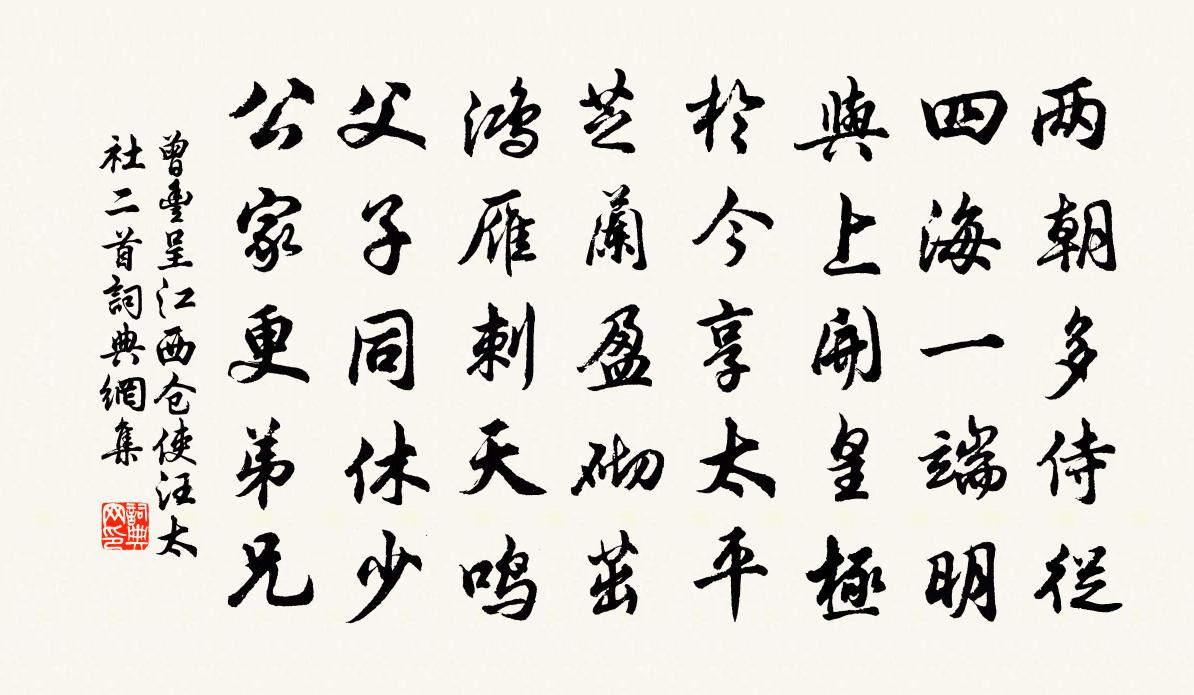 两朝多侍从
四海一端明
與上開皇極
於今享太平
芝蘭盈砌茁
鴻雁刺天鳴
父子同休少
公家更弟兄
曾豊呈江西仓使汪太
社二首詞典網集
詞典
网印